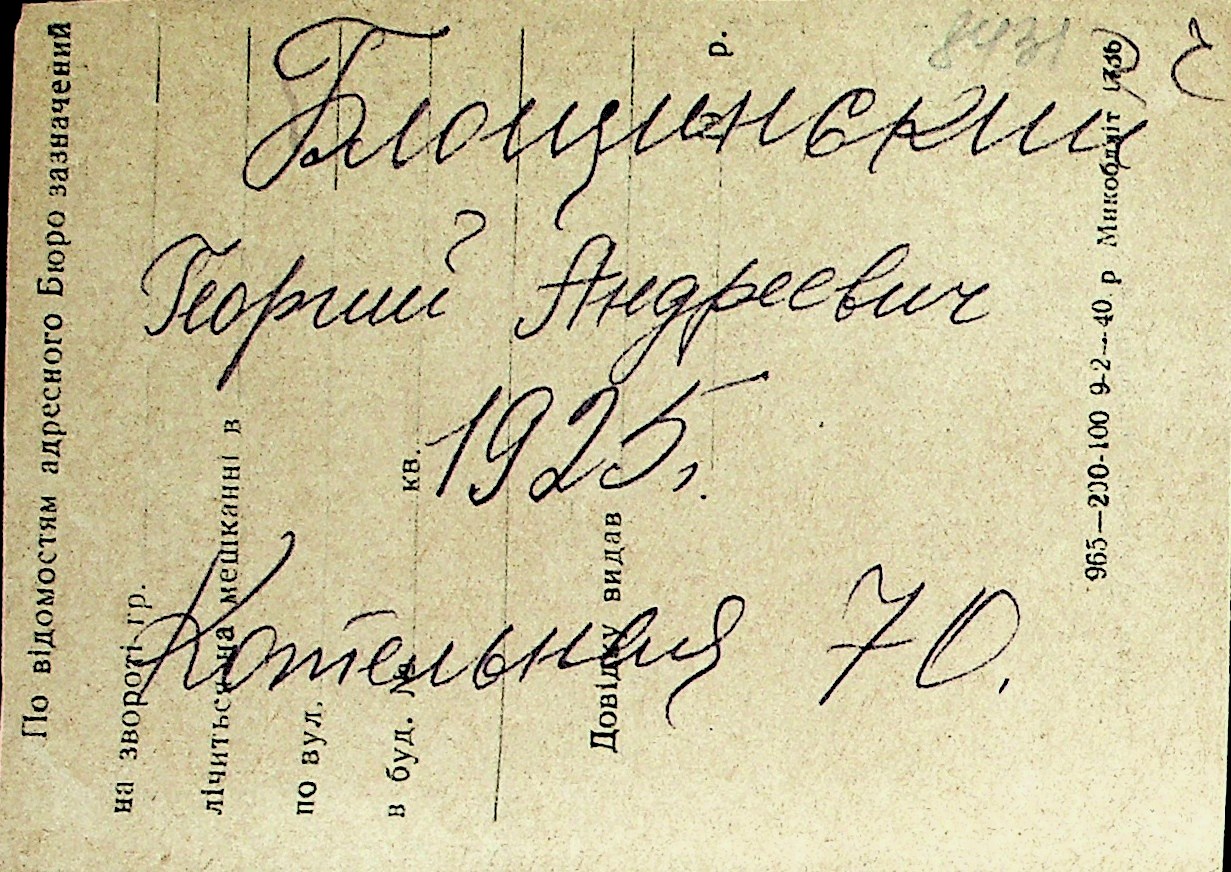 8431
Блощинский
Георгий Андреевич
1925г.
Котельная 70.
По відомостям адресного Бюро зазначений
на звороті гр.
лічиться на мешканні в
по вул.
в буд. № кв.
Довідку видав
р.
965—200-100 9-2—40 р